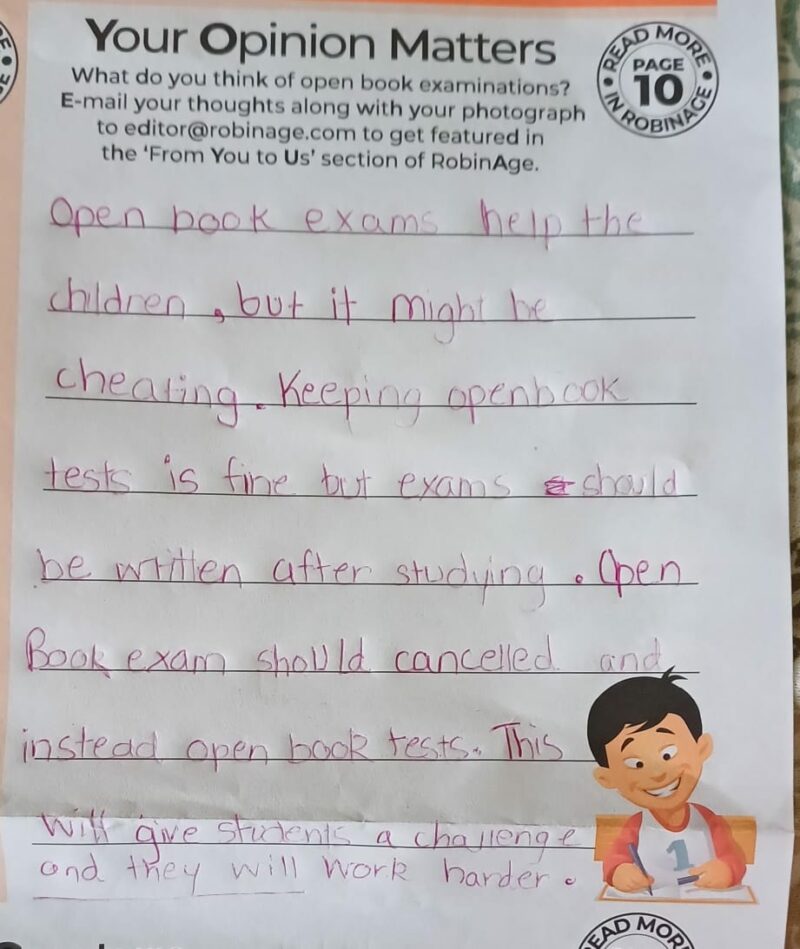 Your Opinion Matters
What do you think of open book examinations?
E-mail your thoughts along with your photograph
to editor@robinage.com to get featured in
the ‘From You to Us’ section of RobinAge.
READ MORE
PAGE
10
IN ROBINAGE
Open book exams help the
children, but it might be
cheating. Keeping openbook
tests is fine but exams should
be written after studying. Open
Book exam should cancelled and
instead open book tests. This
will give students a challenge
and they will work harder.
1
READ MOR